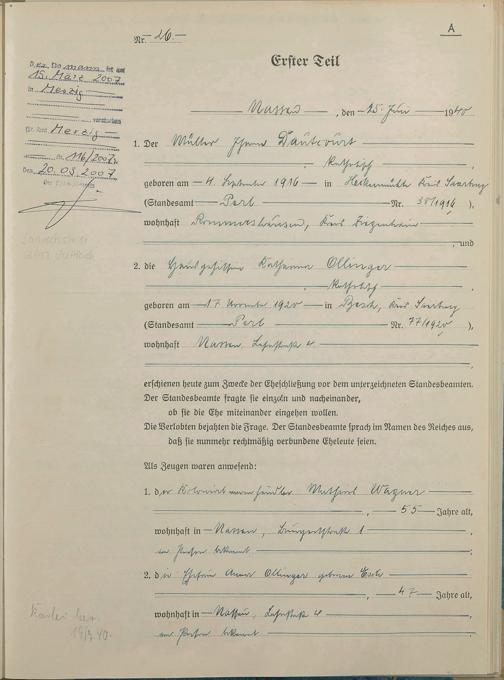 Nr. 26
A
Erster Teil
Der Ehemann ist am
15. März 2007
in Merzig
verstorben
Merzig
Nr. 116/2007
Den 20.03.2007
Nassau, den 15. Juni 1940
1. Der Müller
Katholisch
geboren am 4. September 1916 in Kreis Saarburg
(Standesamt Perl Nr. 38/1916),
wohnhaft Rommershausen, Kreis Ziegenhain
, und
2. die Hausgehilfin Katharina Ollinger
Katholisch
geboren am 17. November 1920 in Besch, Kreis Saarburg
(Standesamt Perl Nr. 77/1920),
wohnhaft Nassau,
erschienen heute zum Zwecke der Eheschließung vor dem unterzeichneten Standesbeamten.
Der Standesbeamte fragte sie einzeln und nacheinander,
ob sie die Ehe miteinander eingehen wollen.
Die Verlobten bejahten die Frage. Der Standesbeamte sprach im Namen des Reiches aus,
daß sie nunmehr rechtmäßig verbundene Eheleute seien.
Als Zeugen waren anwesend:
1. der Wagner
, 55 Jahre alt,
wohnhaft in Nassau, 1
zur Person bekannt
2. die Ehefrau Anna Ollinger geborene Esch
, 47 Jahre alt,
wohnhaft in Nassau,
zur Person bekannt